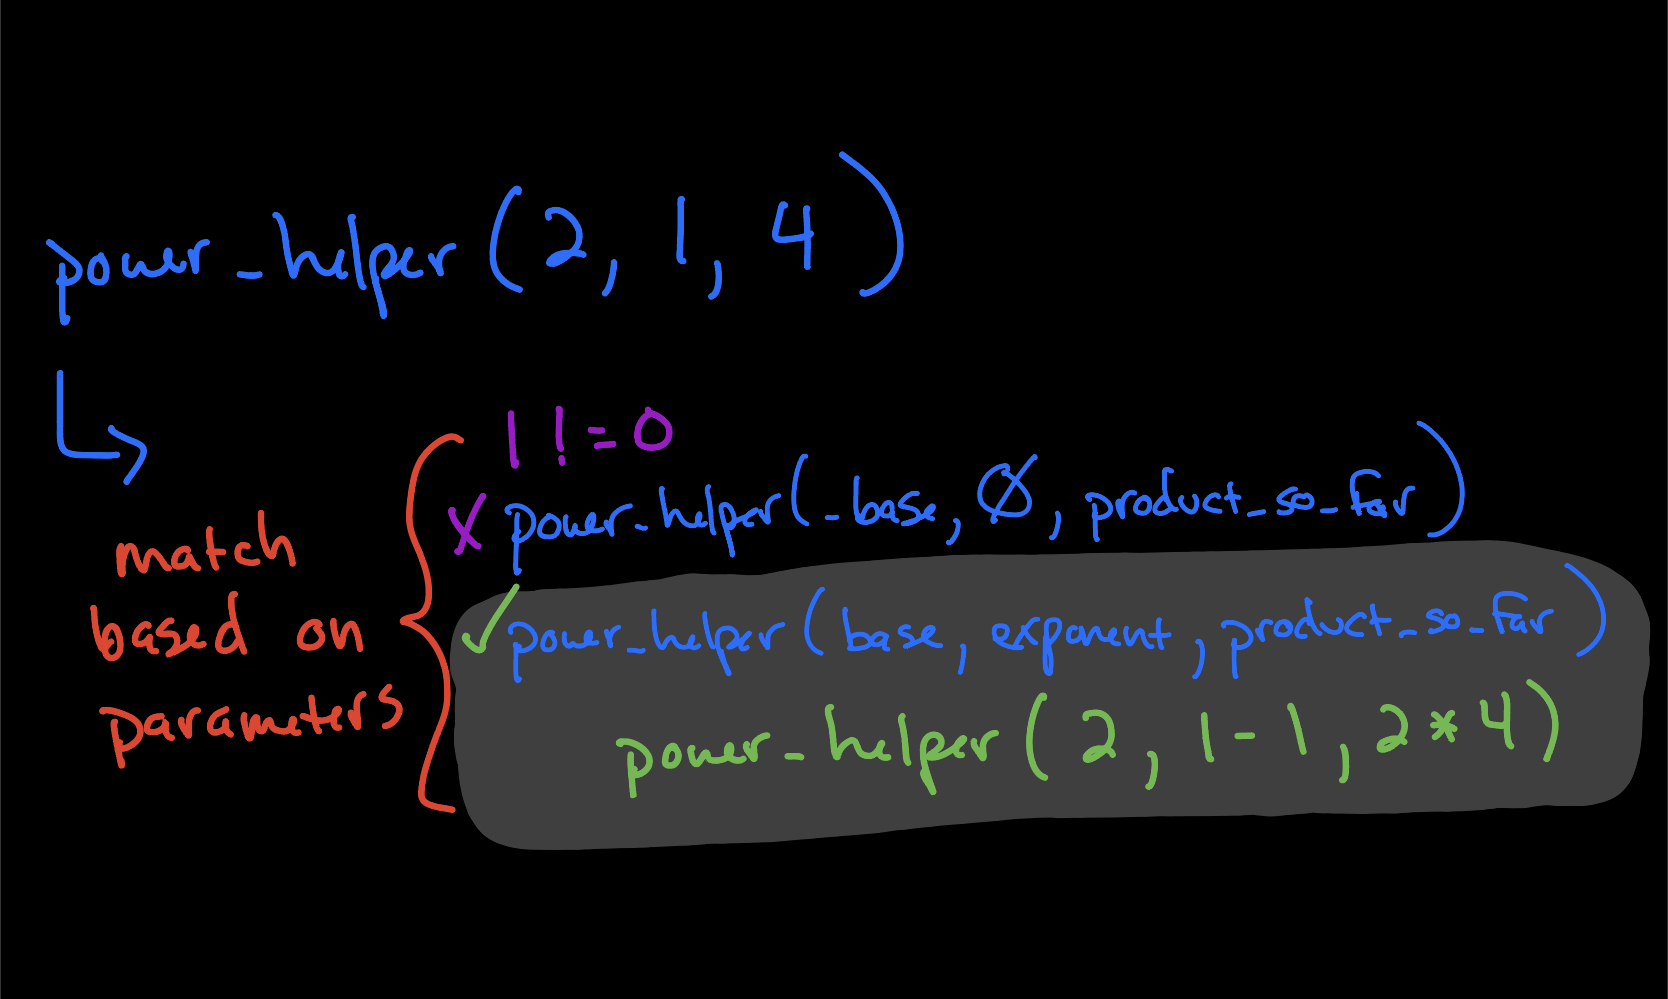 power_helper(2, 1, 4)
1 != 0
match
based on
parameters
X power_helper(_base, 0, product_so_far)
✓ power_helper(base, exponent, product_so_far)
power_helper(2, 1-1, 2*4)